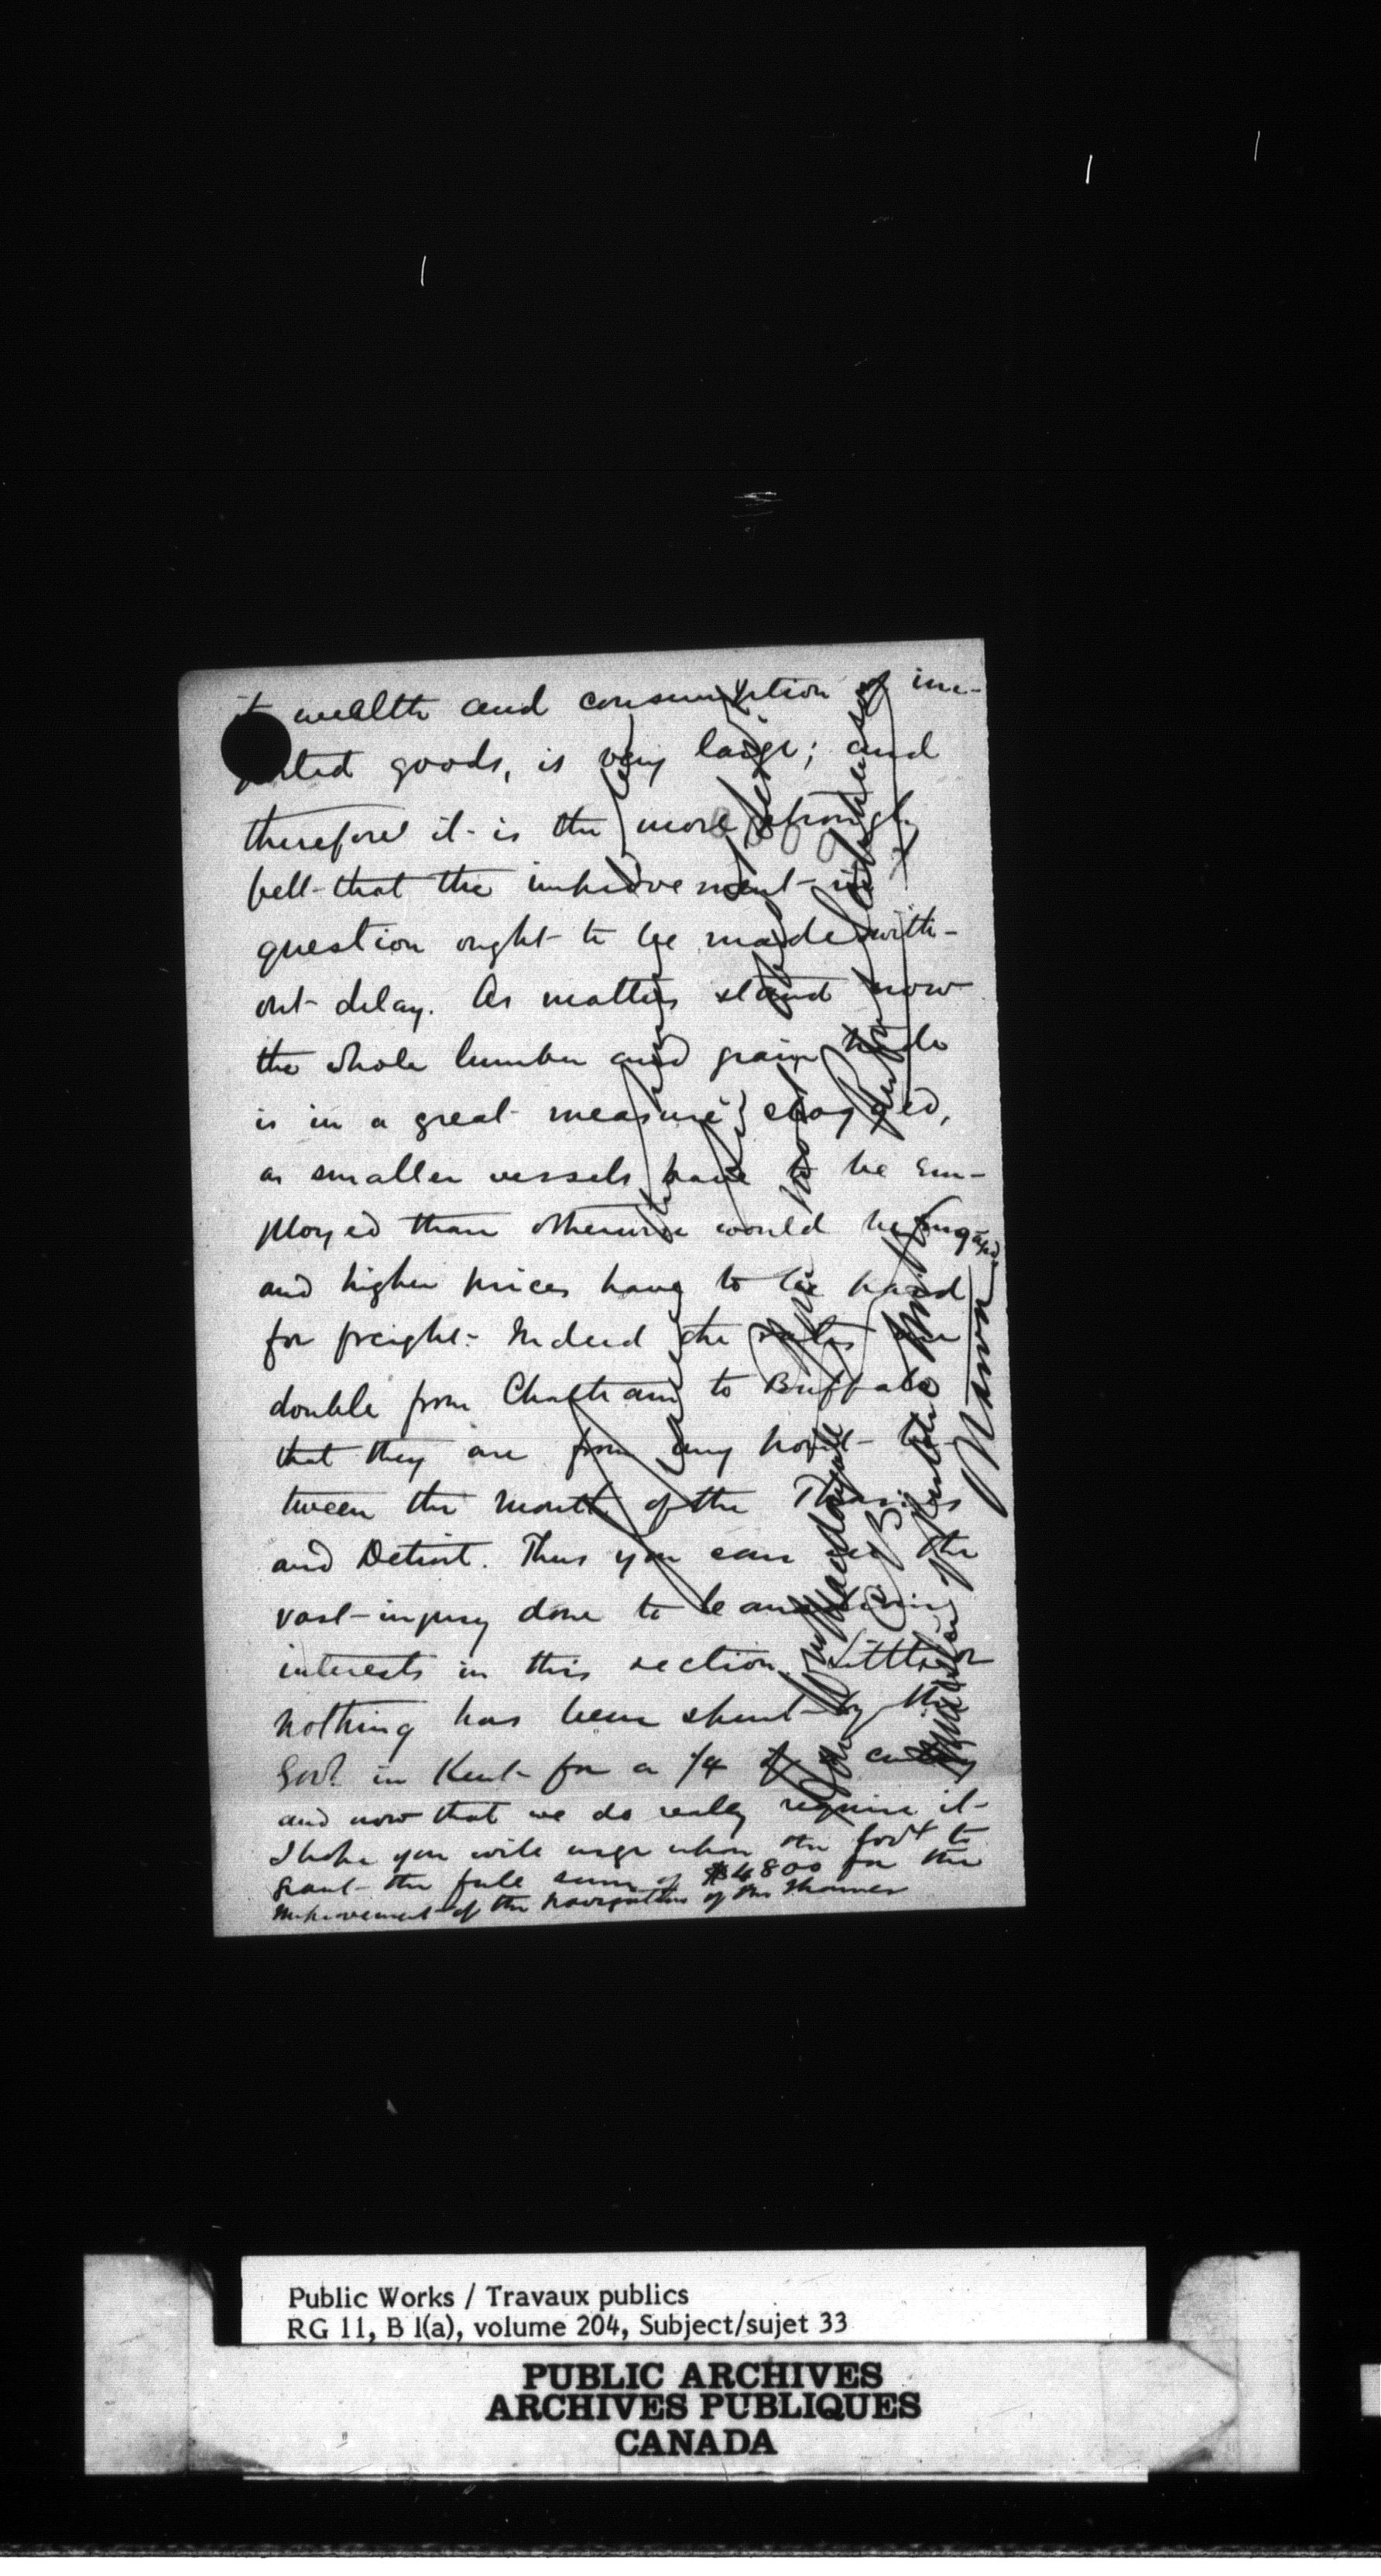 it wealth and consumption of im-
ported goods, is very large; and
therefore it is the more strongly
felt that the improvement in
question ought to be made with-
out delay. As matters stand now
the whole lumber and grain trade
is in a great measure clogged,
as smaller vessels have to be em-
ployed than otherwise would be engaged
and higher prices have to be paid
for freight. Indeed the rates are
double from Chatham to Buffalo
that they are from any point be-
tween the mouth of the Thames
and Detroit. Thus you can see the
vast injury done to
interests in this section. Little or
nothing has been spent by the
Govt in Kent for a 1/4 of a century
and now that we do really require it
I hope you will urge upon the Govt to
grant the full sum of $4800 for the
improvement of the navigation of the Thames
I have
Your
most
C. B.
Hon Wm Macdougall
Minister Public
Public Works / Travaux publics
RG 11, B 1(a), volume 204, Subject/sujet 33
PUBLIC ARCHIVES
ARCHIVES PUBLIQUES
CANADA